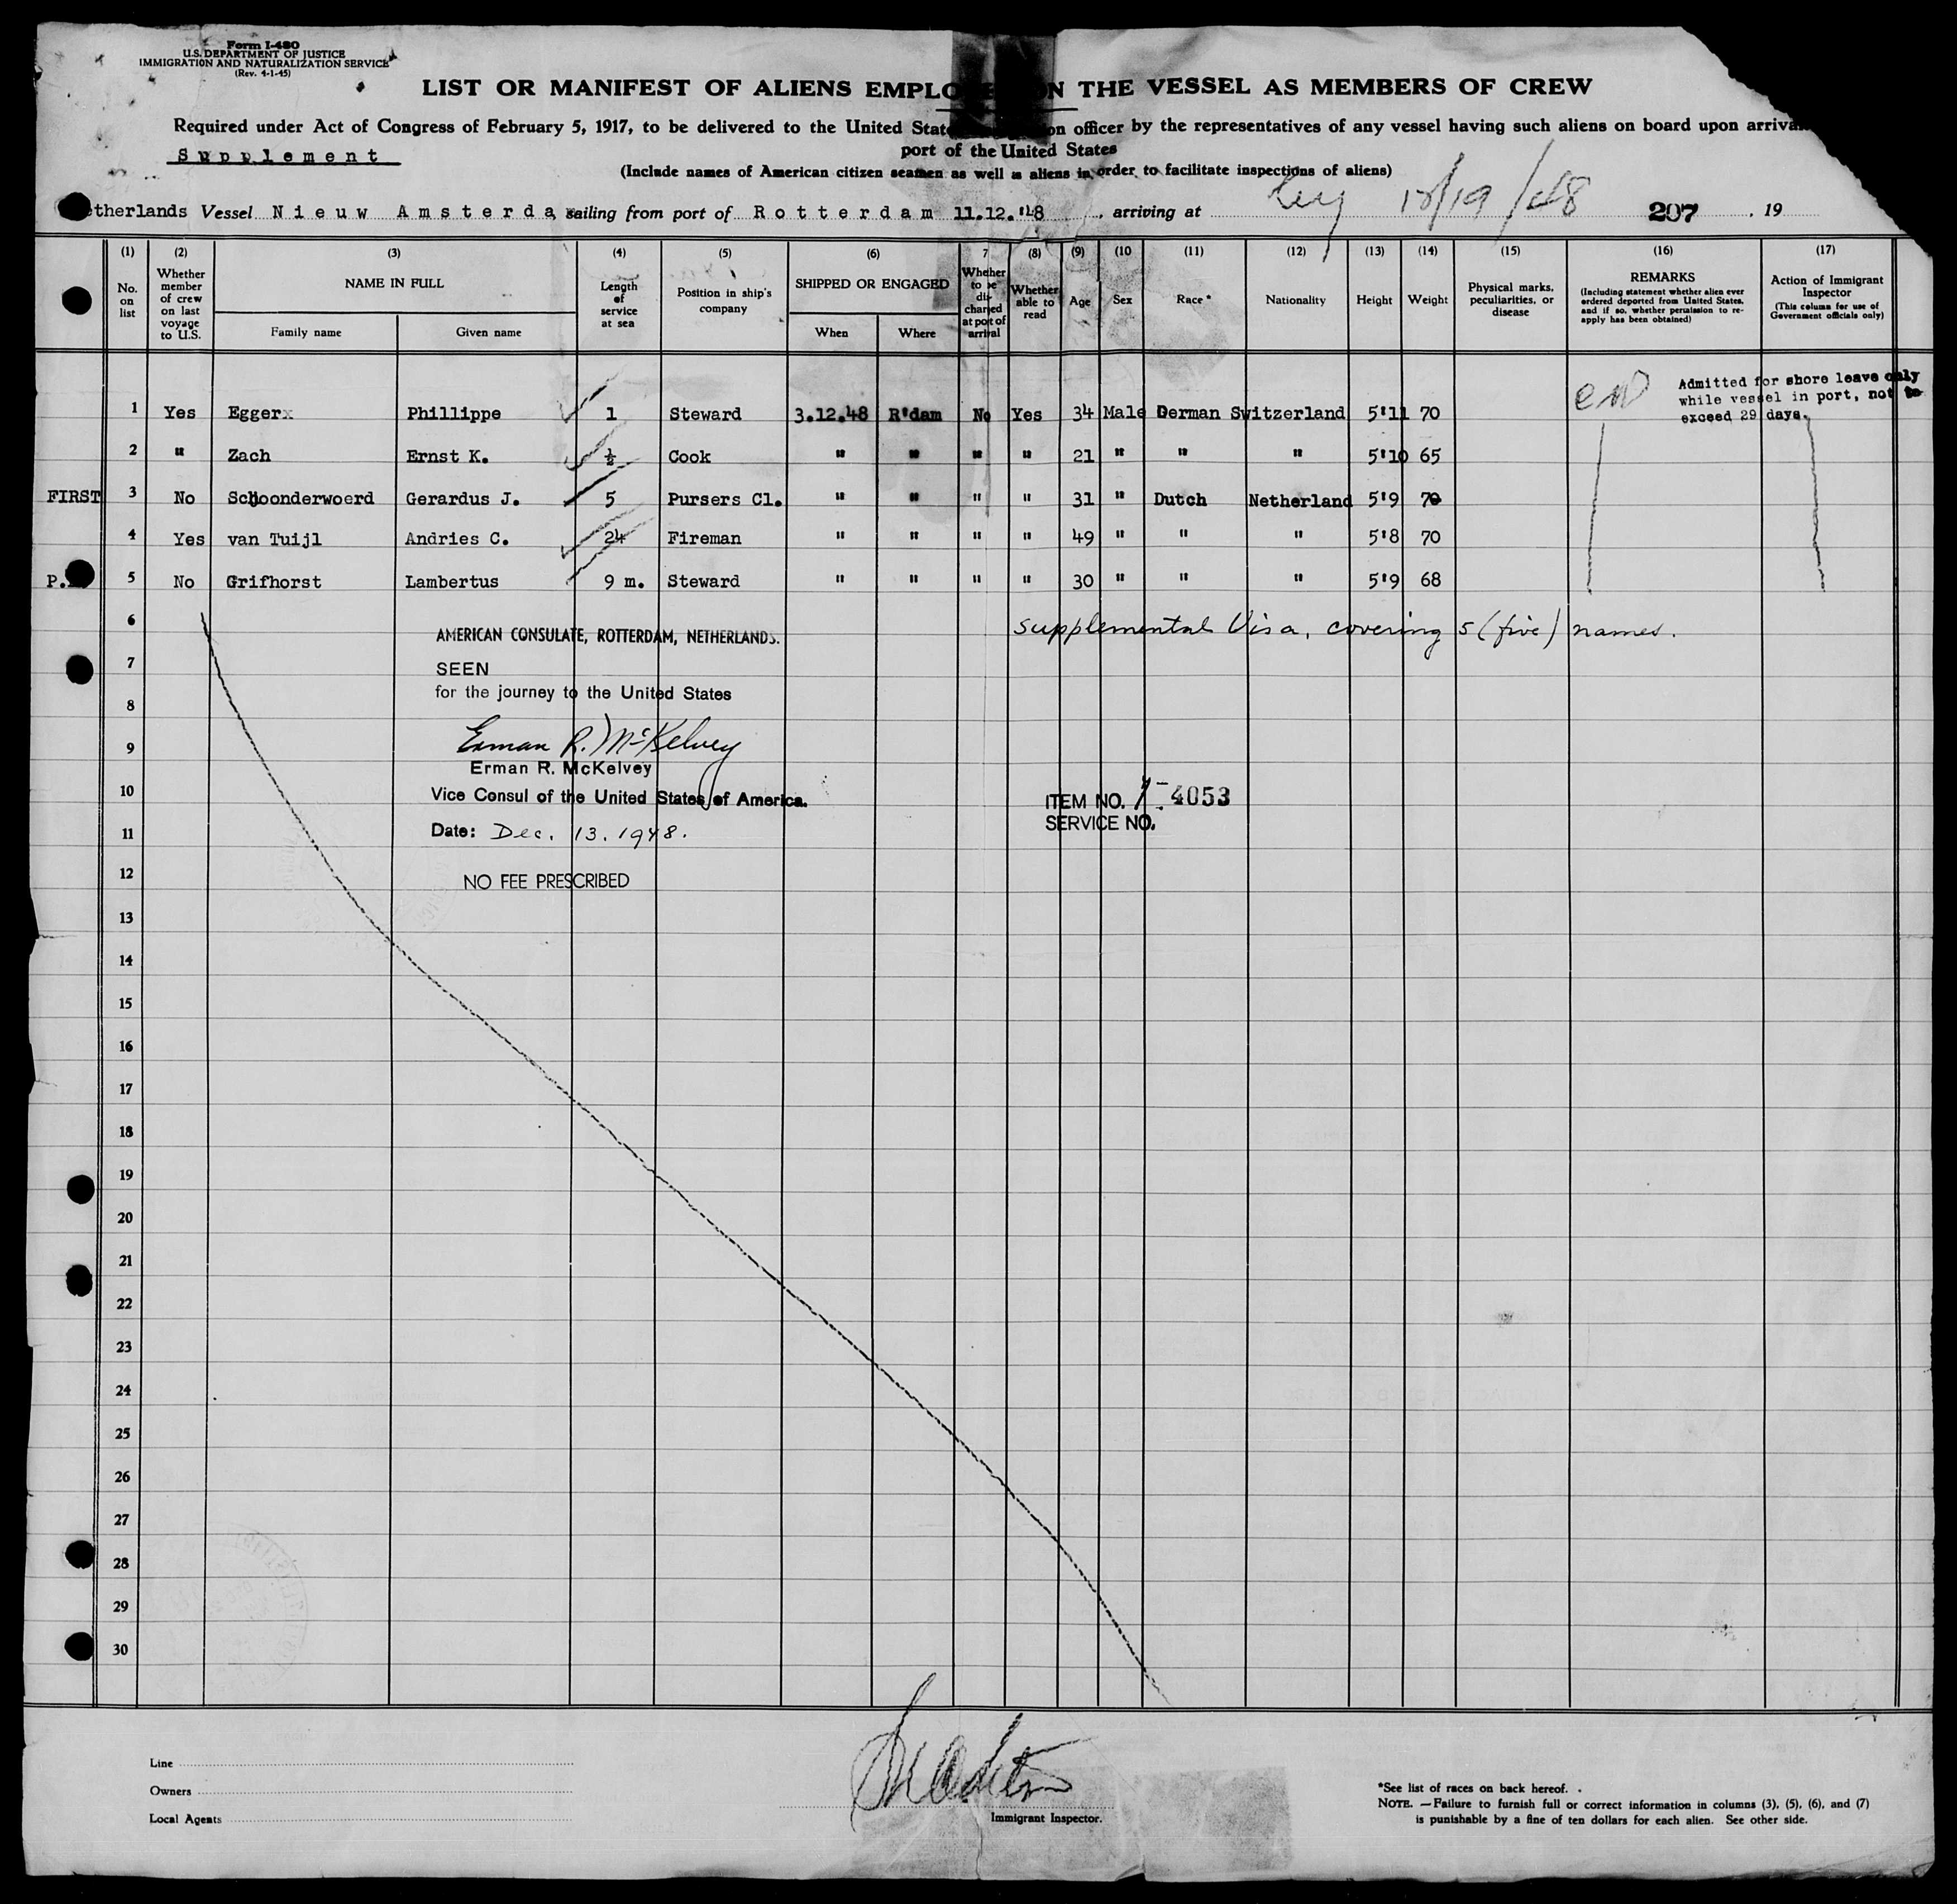 Form I-480
U.S. DEPARTMENT OF JUSTICE
IMMIGRATION AND NATURALIZATION SERVICE
(Rev. 4-1-45)
LIST OR MANIFEST OF ALIENS EMPLO N THE VESSEL AS MEMBERS OF CREW
Required under Act of Congress of February 5, 1917, to be delivered to the United State on officer by the representatives of any vessel having such aliens on board upon arriva
port of the United States
Supplement
(Include names of American citizen seamen as well as aliens in order to facilitate inspections of aliens)
etherlands Vessel Nieuw Amsterda sailing from port of Rotterdam 11.12.'48, arriving at 12/19/48 207, 19
(1) (2) (3) (4) (5) (6) 7 (8) (9) (10 (11) (12) (13) (14) (15) (16) (17)
No. on list Whether member of crew on last voyage to U.S. NAME IN FULL Family name Given name Length of service at sea Position in ship's company SHIPPED OR ENGAGED When Where Whether to be discharged at port of arrival Whether able to read Age Sex Race* Nationality Height Weight Physical marks, peculiarities, or disease REMARKS (Including statement whether alien ever ordered deported from United States, and if so, whether permission to re-apply has been obtained) Action of Immigrant Inspector (This column for use of Government officials only)
Admitted for shore leave only
while vessel in port, not to
exceed 29 days.
1 Yes Egger Phillippe 1 Steward 3.12.48 R'dam No Yes 34 Male German Switzerland 5'11 70
2 " Zach Ernst K. ½ Cook " " " " 21 " " " 5'10 65
FIRST 3 No Schoonderwoerd Gerardus J. 5 Pursers Cl. " " " " 31 " Dutch Netherland 5'9 70
4 Yes van Tuijl Andries C. 24 Fireman " " " " 49 " " " 5'8 70
P. 5 No Grifhorst Lambertus 9 m. Steward " " " " 30 " " " 5'9 68
6 supplemental Visa, covering 5 (five) names.
AMERICAN CONSULATE, ROTTERDAM, NETHERLANDS.
7 SEEN
for the journey to the United States
8
9 Erman R. McKelvey
Erman R. McKelvey
10 Vice Consul of the United States of America. ITEM NO. 4053
SERVICE NO.
11 Date: Dec. 13. 1948.
12 NO FEE PRESCRIBED
13
14
15
16
17
18
19
20
21
22
23
24
25
26
27
28
29
30
Line
Owners
Local Agents
Immigrant Inspector.
*See list of races on back hereof.
NOTE.—Failure to furnish full or correct information in columns (3), (5), (6), and (7)
is punishable by a fine of ten dollars for each alien. See other side.